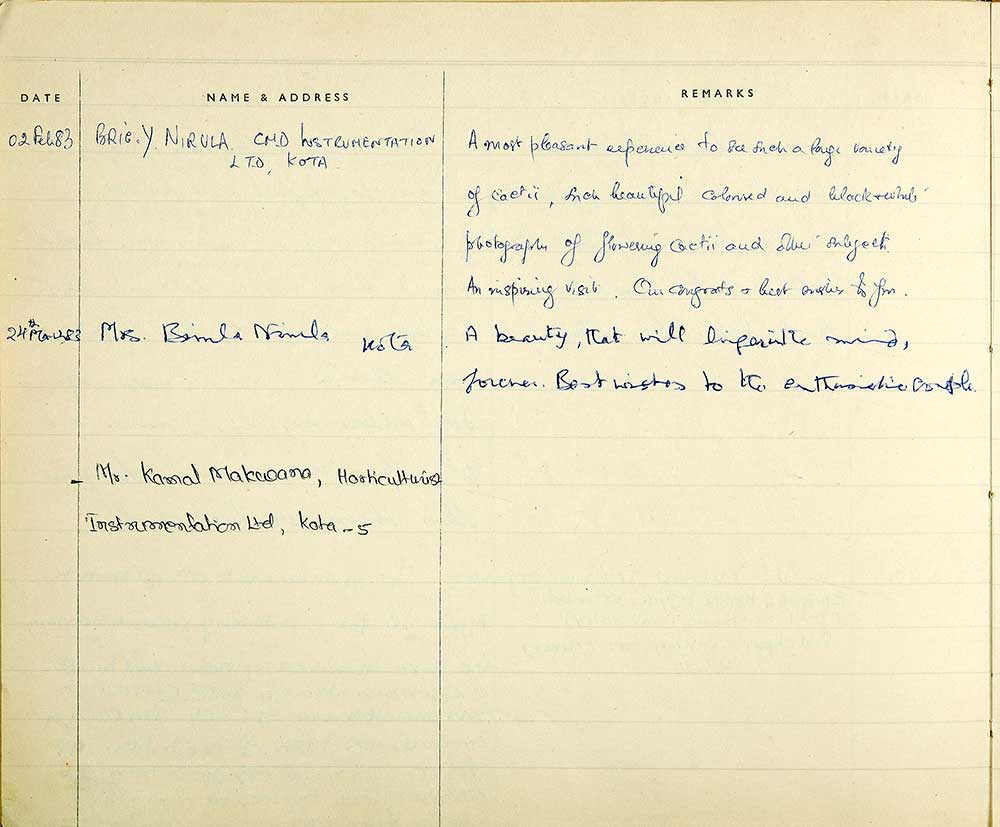 DATE NAME & ADDRESS REMARKS
02 Feb 83 BRIG. Y. NIRULA. CMD INSTRUMENTATION
LTD, KOTA
A most pleasant experience to see such a large variety
of cactii, such beautiful coloured and black & white
photographs of flowering cactii and other subjects.
An inspiring visit. Our congrats & best wishes to you.
24th 83 Mrs. Bimla Nirula Kota
A beauty, that will linger in the mind,
forever. Best wishes to the enthusiastic couple.
- Mr. Kamal Makwana, Horticulturist
Instrumentation Ltd, Kota - 5